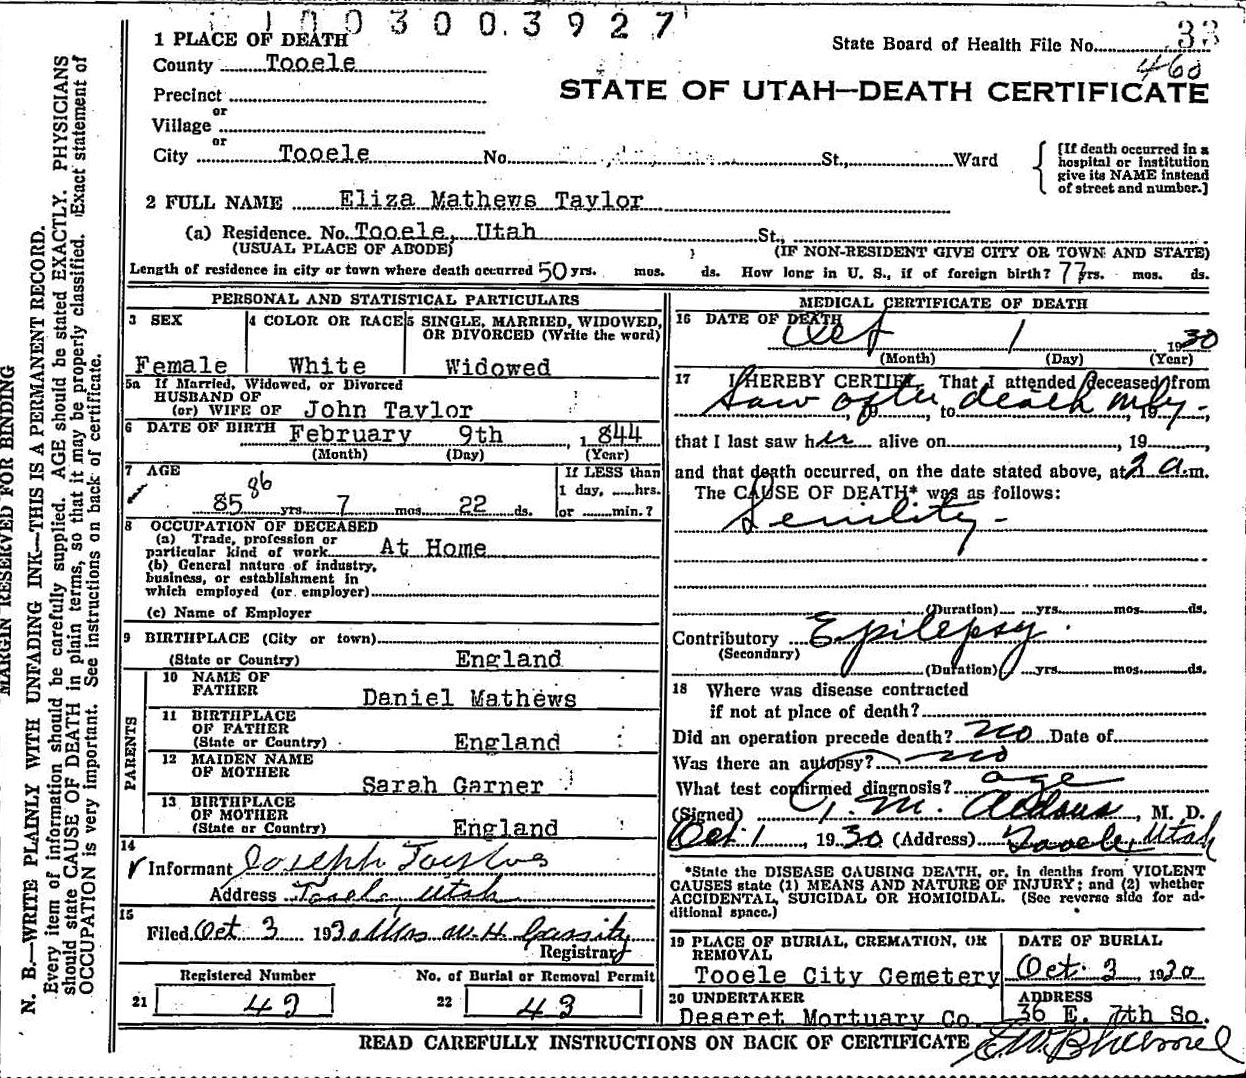 1003003927
1 PLACE OF DEATH
State Board of Health File No. 33
460
County Tooele
STATE OF UTAH—DEATH CERTIFICATE
Precinct
or
Village
or
City Tooele No. St., Ward
[If death occurred in a
hospital or institution
give its NAME instead
of street and number.]
2 FULL NAME Eliza Mathews Taylor
(a) Residence. No. Tooele, Utah St.,
(USUAL PLACE OF ABODE) (IF NON-RESIDENT GIVE CITY OR TOWN AND STATE)
Length of residence in city or town where death occurred 50 yrs. mos. ds. How long in U. S., if of foreign birth? 77 yrs. mos. ds.
PERSONAL AND STATISTICAL PARTICULARS
3 SEX
Female
4 COLOR OR RACE
White
5 SINGLE, MARRIED, WIDOWED,
OR DIVORCED (Write the word)
Widowed
5a If Married, Widowed, or Divorced
HUSBAND OF
(or) WIFE OF John Taylor
6 DATE OF BIRTH February 9th, 1844
(Month) (Day) (Year)
7 AGE
86
85 yrs. 7 mos. 22 ds.
If LESS than
1 day, ......hrs.
or ...... min.?
8 OCCUPATION OF DECEASED
(a) Trade, profession or
particular kind of work At Home
(b) General nature of industry,
business, or establishment in
which employed (or employer)
(c) Name of Employer
9 BIRTHPLACE (City or town)
(State or Country) England
PARENTS
10 NAME OF
FATHER Daniel Mathews
11 BIRTHPLACE
OF FATHER
(State or Country) England
12 MAIDEN NAME
OF MOTHER Sarah Garner
13 BIRTHPLACE
OF MOTHER
(State or Country) England
14
Informant Joseph Taylor
Address Tooele, Utah
15
Filed Oct 3 1930 Mrs W. H. Cassity
Registrar
Registered Number No. of Burial or Removal Permit
21 43 22 43
MEDICAL CERTIFICATE OF DEATH
16 DATE OF DEATH
Oct 1 1930
(Month) (Day) (Year)
17 I HEREBY CERTIFY, That I attended deceased from
Saw after death only, 19 , to , 19 ,
that I last saw her alive on , 19 ,
and that death occurred, on the date stated above, at 2 a.m.
The CAUSE OF DEATH* was as follows:
Senility
(Duration) yrs. mos. ds.
Contributory Epilepsy.
(Secondary)
(Duration) yrs. mos. ds.
18 Where was disease contracted
if not at place of death?
Did an operation precede death? no Date of
Was there an autopsy? no
What test confirmed diagnosis? age
(Signed) M. , M. D.
Oct 1, 1930 (Address) Tooele, Utah
*State the DISEASE CAUSING DEATH, or, in deaths from VIOLENT
CAUSES state (1) MEANS AND NATURE OF INJURY; and (2) whether
ACCIDENTAL, SUICIDAL OR HOMICIDAL. (See reverse side for ad-
ditional space.)
19 PLACE OF BURIAL, CREMATION, OR
REMOVAL
Tooele City Cemetery
DATE OF BURIAL
Oct. 3, 1930
20 UNDERTAKER
Deseret Mortuary Co.
ADDRESS
36 E. 7th So.
READ CAREFULLY INSTRUCTIONS ON BACK OF CERTIFICATE
MARGIN RESERVED FOR BINDING
N. B.—WRITE PLAINLY WITH UNFADING INK—THIS IS A PERMANENT RECORD.
Every item of information should be carefully supplied. AGE should be stated EXACTLY. PHYSICIANS
should state CAUSE OF DEATH in plain terms, so that it may be properly classified. Exact statement of
OCCUPATION is very important. See instructions on back of certificate.